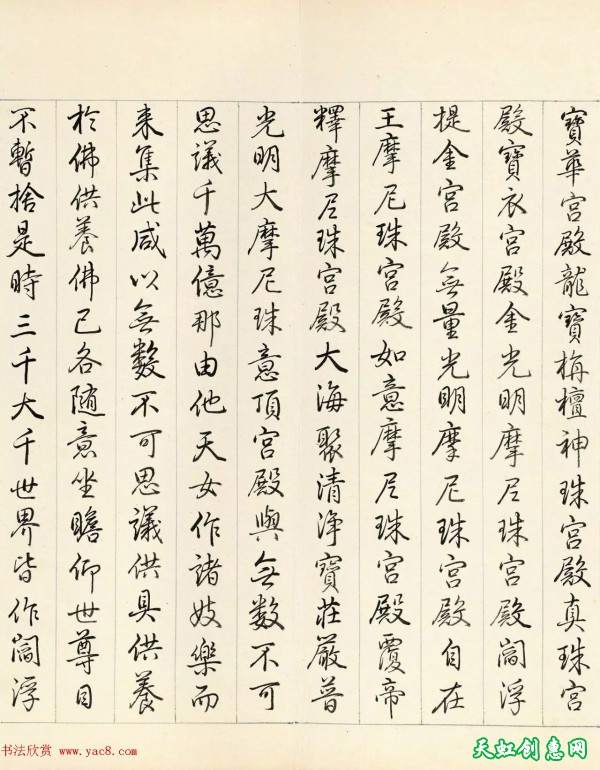 寶華宮殿龍寶栴檀神珠宮殿真珠宮
殿寶衣宮殿金光明摩尼珠宮殿閻浮
提金宮殿無量光明摩尼珠宮殿自在
王摩尼珠宮殿如意摩尼珠宮殿覆帝
釋摩尼珠宮殿大海聚清淨寶莊嚴普
光明大摩尼珠意頂宮殿與无數不可
思議千萬億那由他天女作諸妓樂而
来集此咸以无數不可思議供具供養
於佛供養佛已各隨意坐瞻仰世尊目
不暫捨是時三千大千世界皆作閻浮
书法欣赏 www.yac8.com
天虹创惠网